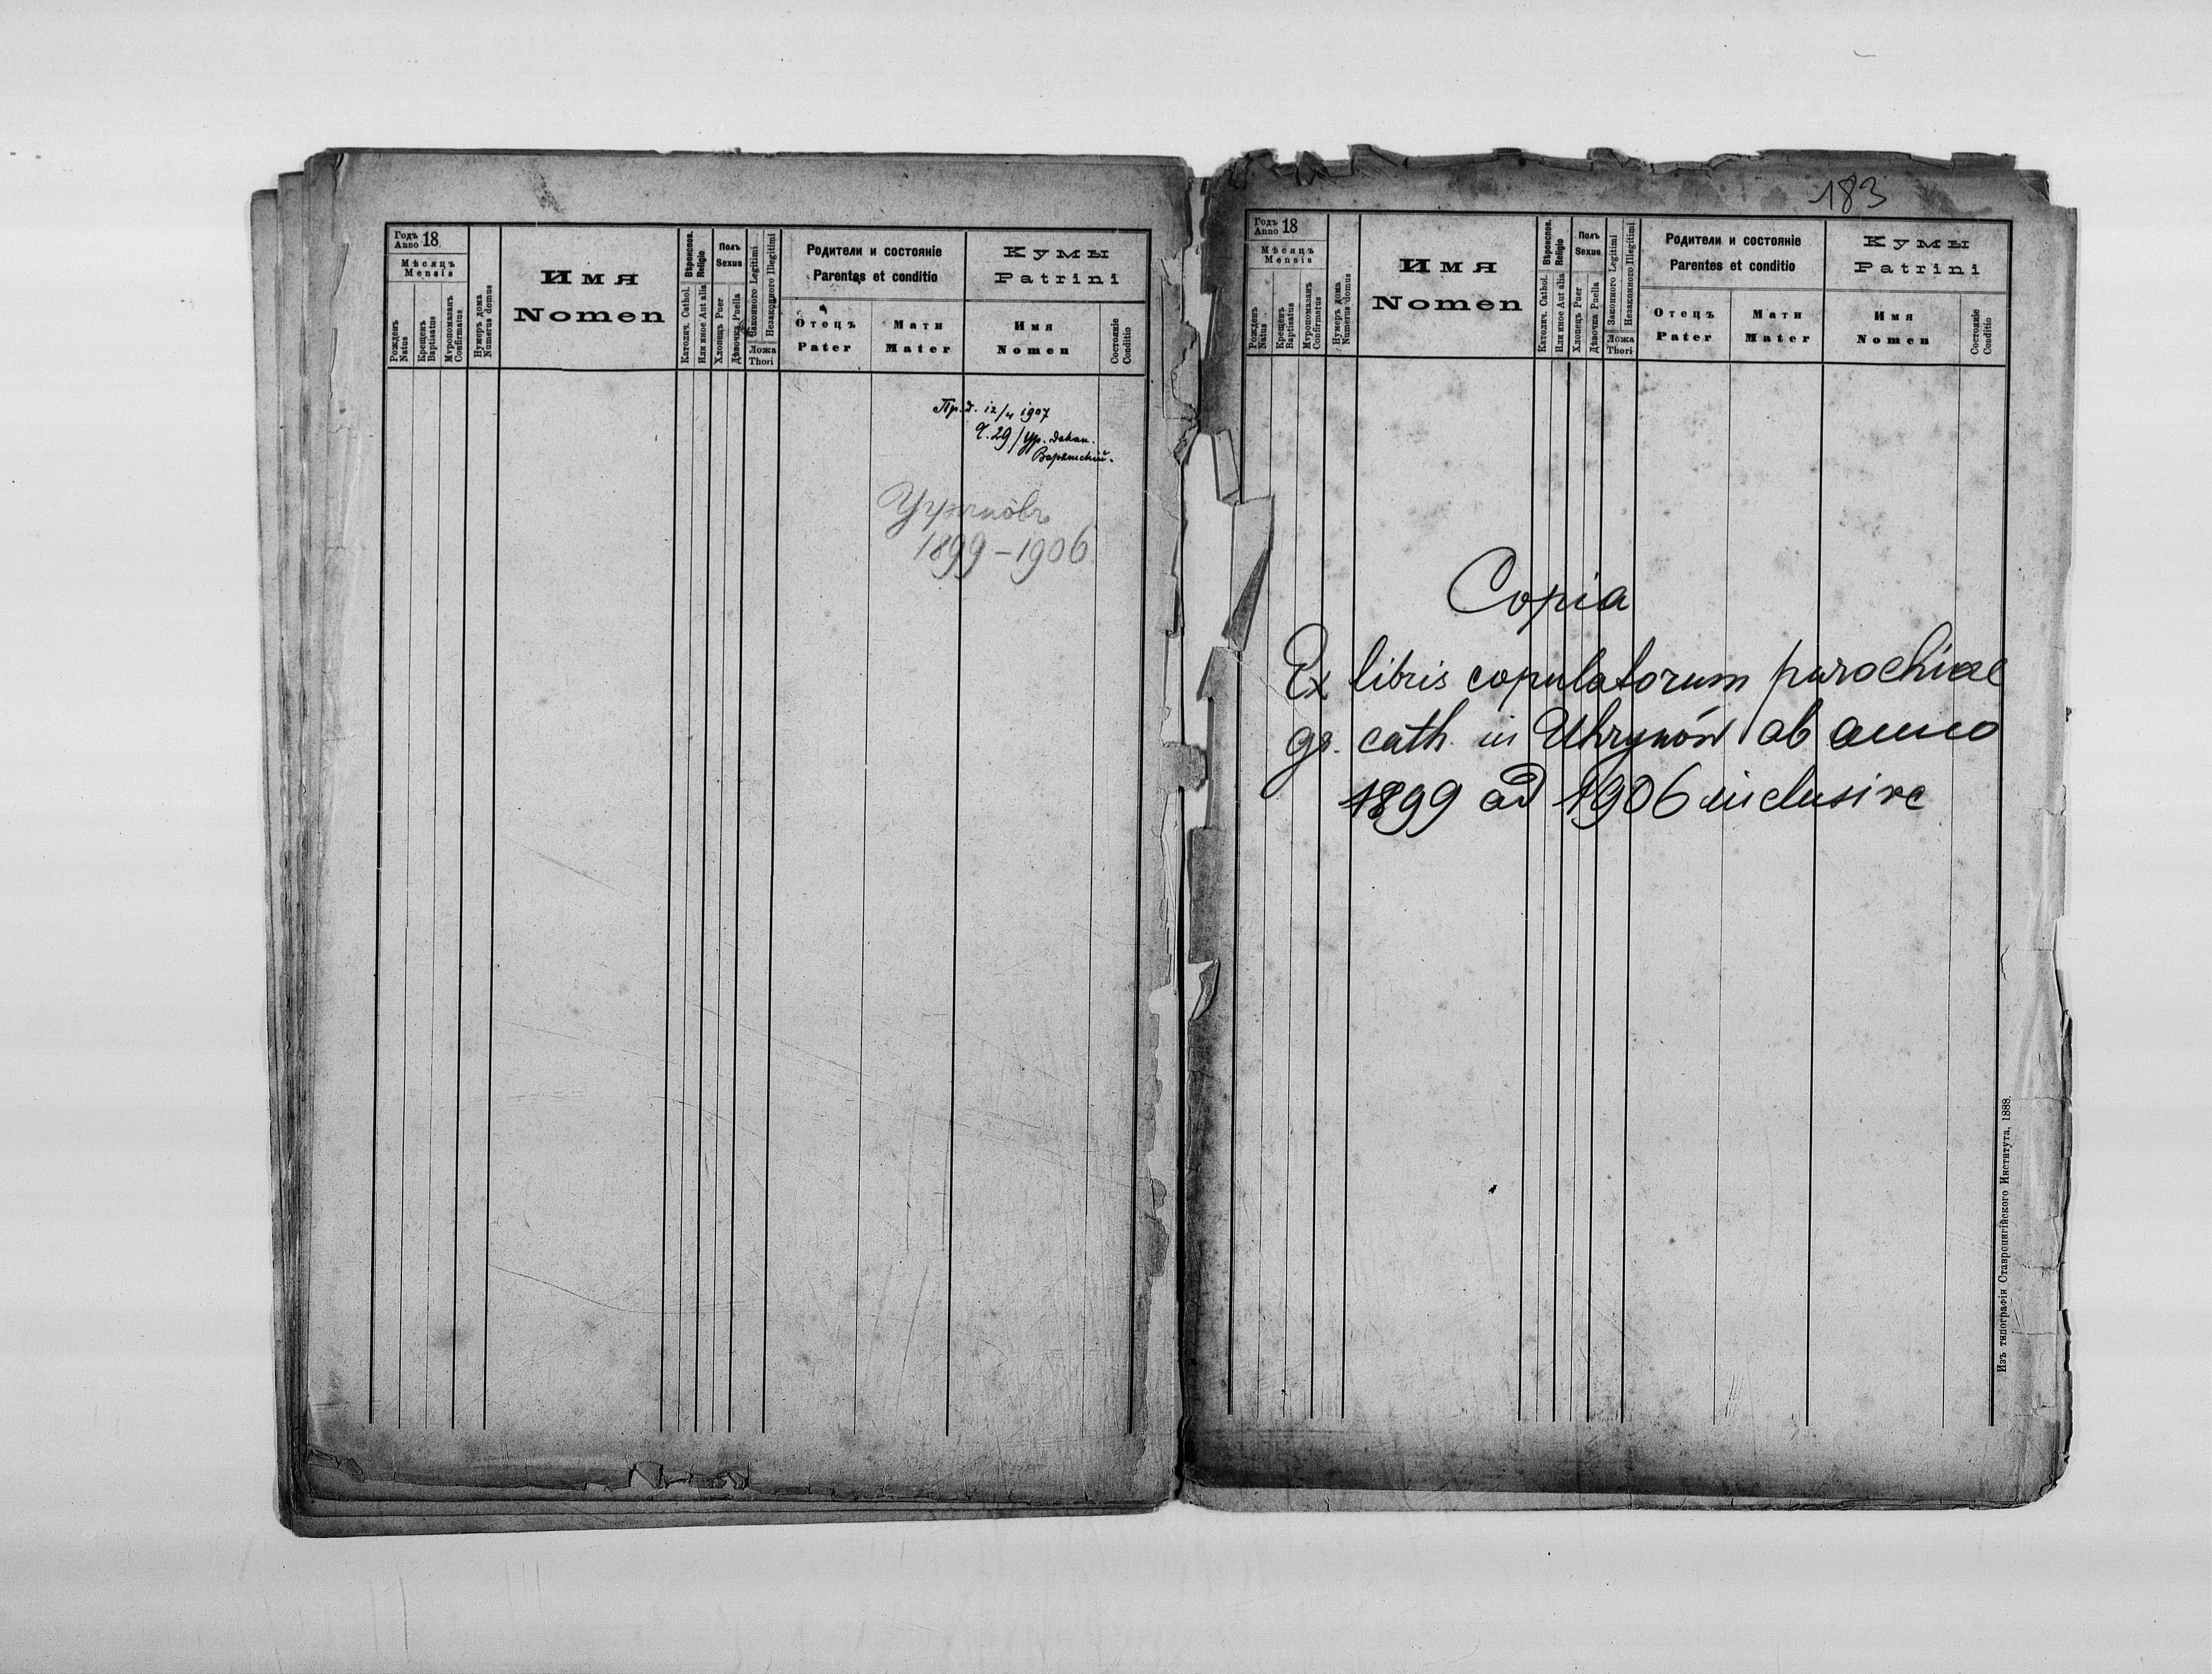 Годъ 18
Anno
Мѣсяцъ
Mensis
Рожденъ
Natus
Крещенъ
Baptisatus
Мѵропомазанъ
Confirmatus
Нумеръ дома
Numerus domus
Имя
Nomen
Вѣроиспов.
Religio
Католич. Cathol.
Или иное Aut alia
Полъ
Sexus
Хлопецъ Puer
Дѣвочка Puella
Законного Legitimi
Незаконного Illegitimi
Ложа
Thori
Родители и состояніе
Parentes et conditio
Отецъ
Pater
Мати
Mater
Кумы
Patrini
Имя
Nomen
Состояніе
Conditio
Пр. д. 12/4 1907
Ч. 29/Ур. декан.
1899-1906
183
Годъ 18
Anno
Мѣсяцъ
Mensis
Рожденъ
Natus
Крещенъ
Baptisatus
Мѵропомазанъ
Confirmatus
Нумеръ дома
Numerus domus
Имя
Nomen
Вѣроиспов.
Religio
Католич. Cathol.
Или иное Aut alia
Полъ
Sexus
Хлопецъ Puer
Дѣвочка Puella
Законного Legitimi
Незаконного Illegitimi
Ложа
Thori
Родители и состояніе
Parentes et conditio
Отецъ
Pater
Мати
Mater
Кумы
Patrini
Имя
Nomen
Состояніе
Conditio
Copia
Ex libris copulatorum parochiae
gr. cath. in Uhrynów ab anno
1899 ad 1906 inclusive
Изъ типографіи Ставропигійского Института, 1888.